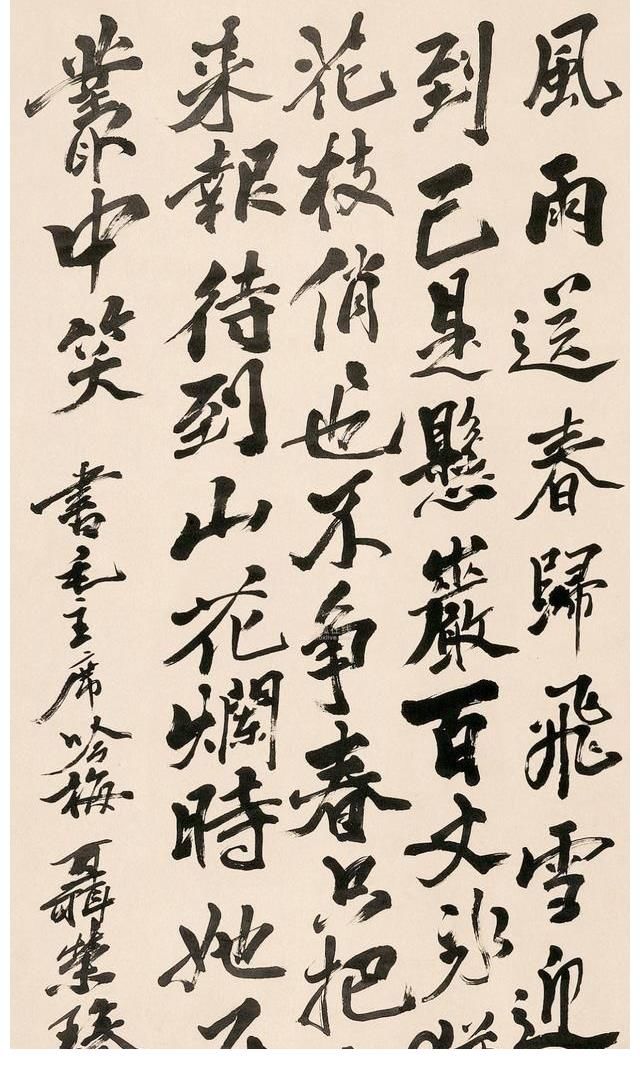 風雨送春歸飛雪迎
到已是懸巖百丈冰
花枝俏也不争春只把
来報待到山花爛時她
叢中笑
書毛主席咏梅 聶榮臻